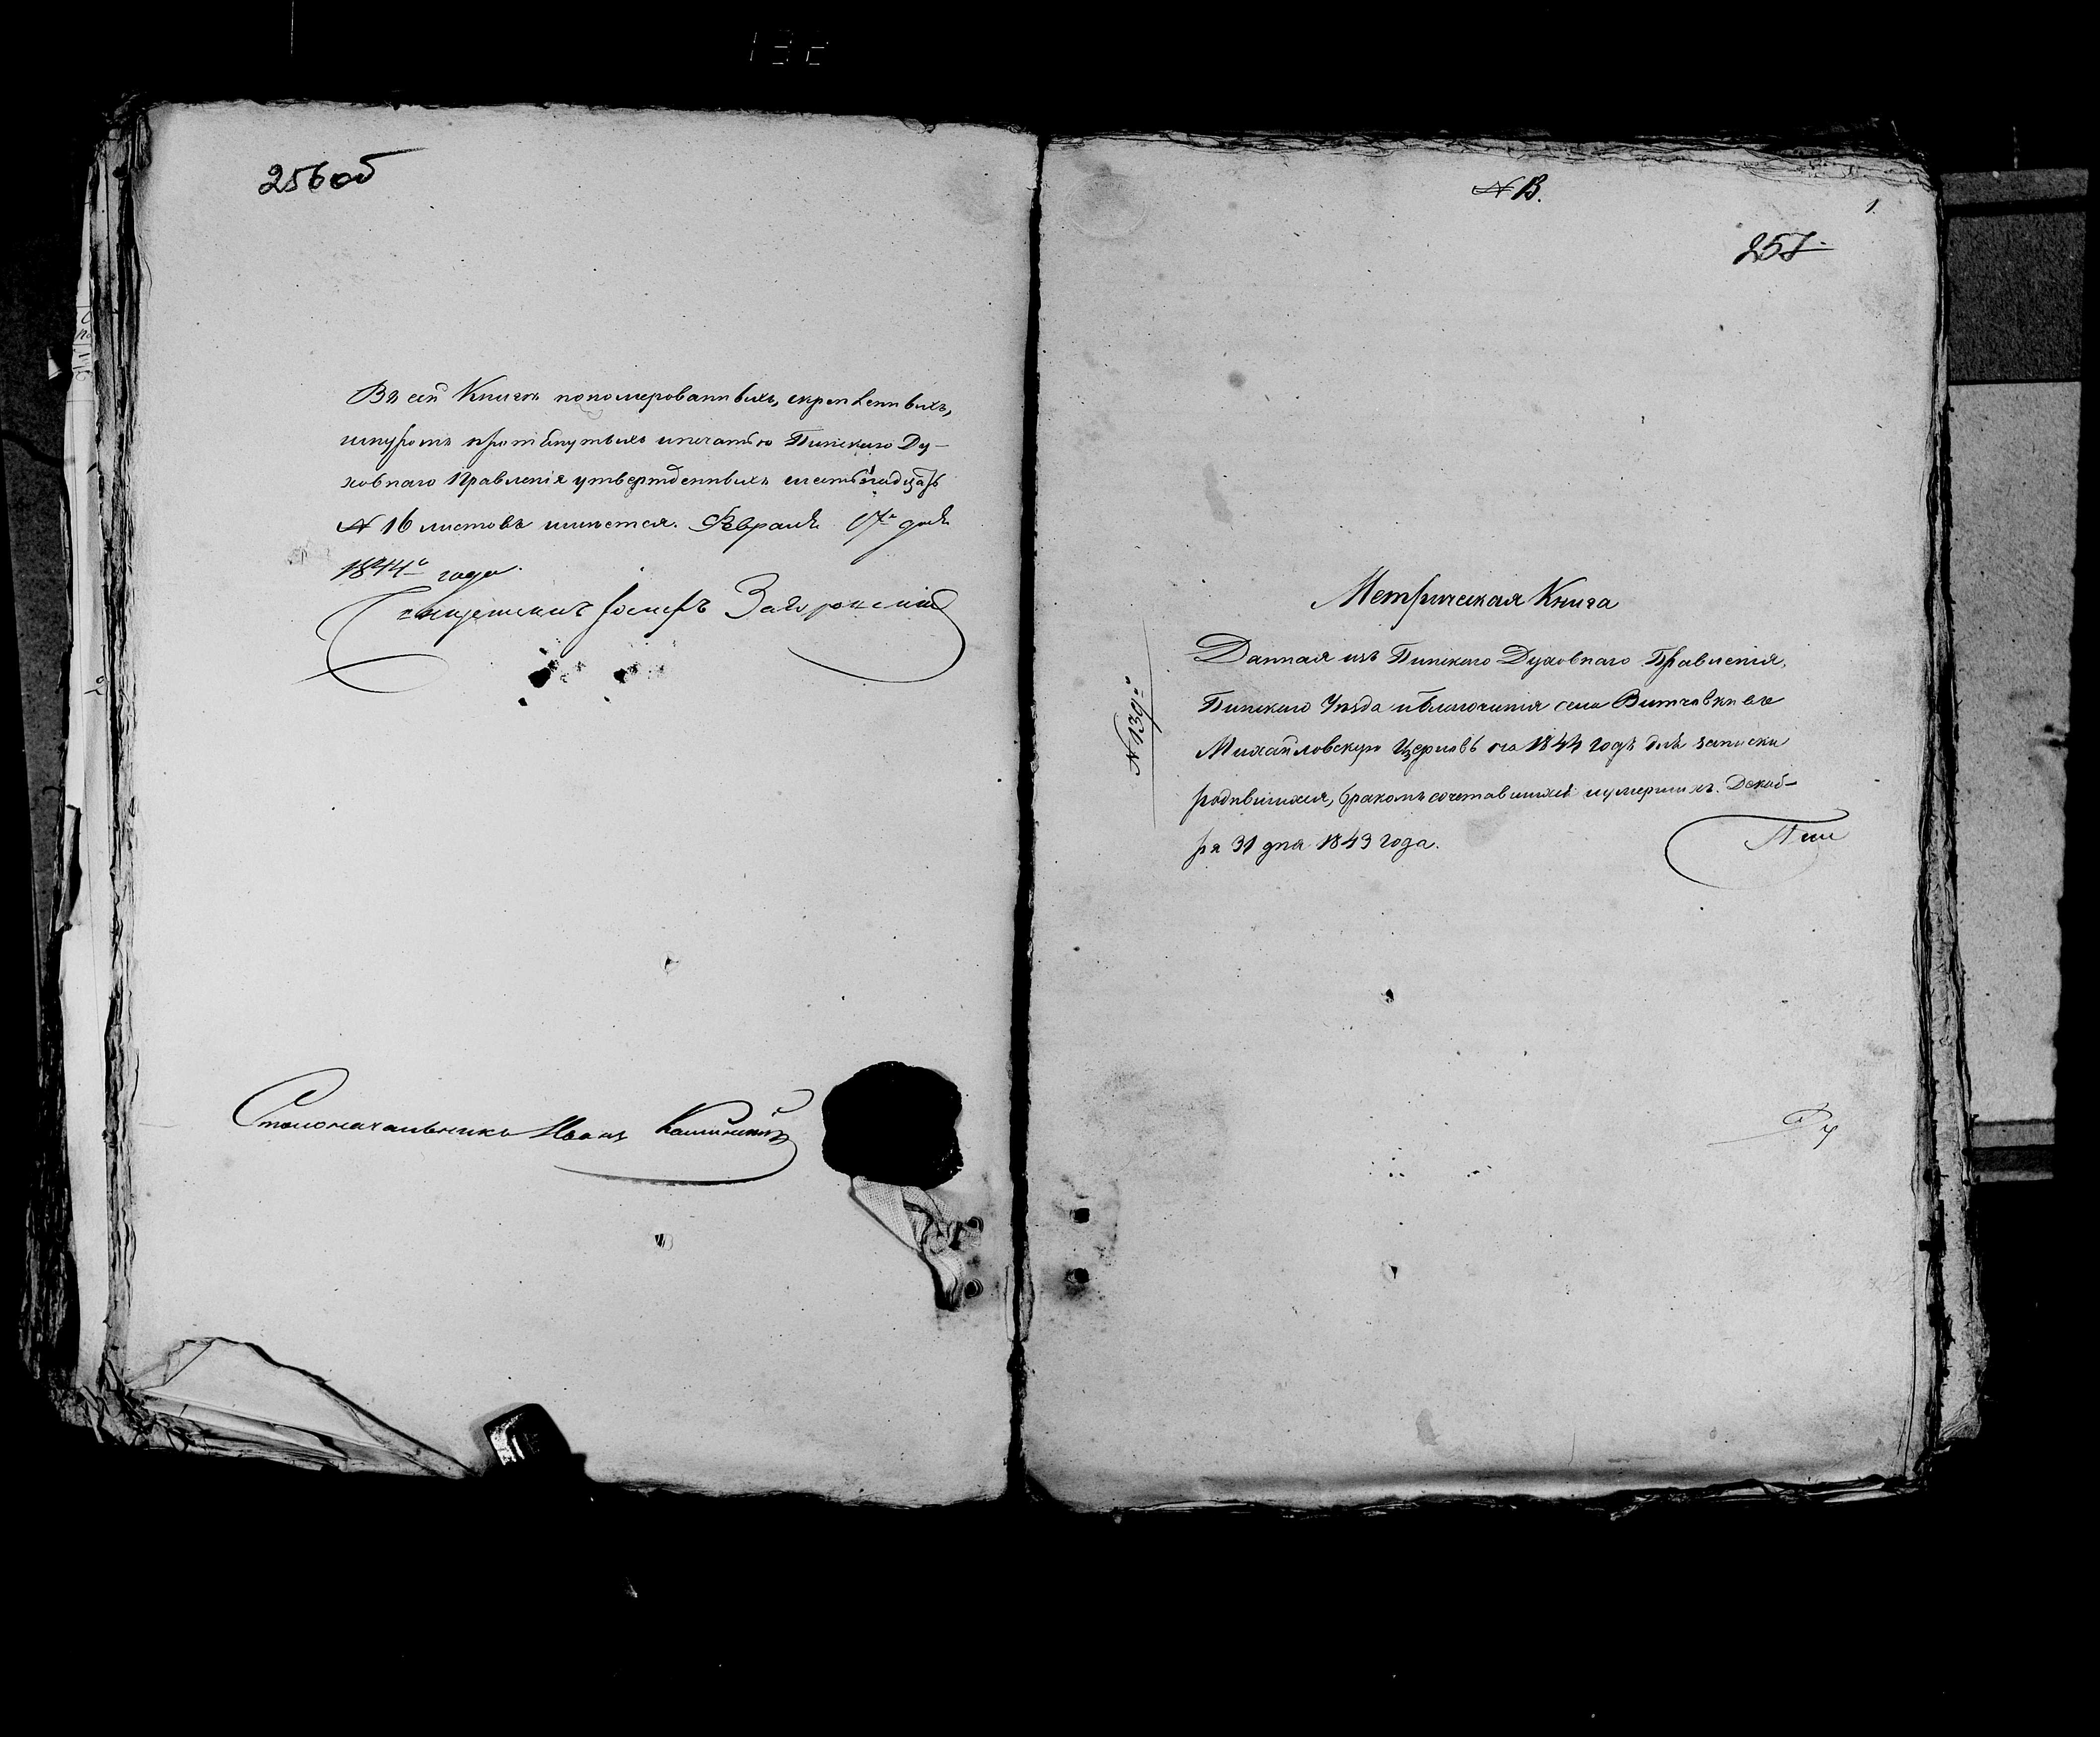 132
256об
Въ сей Книгѣ пономерованныхъ, скрепленныхъ,
шнуромъ протянутыхъ и печатью Пинскаго Ду-
ховнаго Правленія утвержденныхъ шестьнадцать
№ 16 листовъ имѣется. Февраля 17го дня
1844го года.
Священникъ Іосифъ
Столоначальникъ Иванъ
№ 13.
1.
257
Метрическая Книга
Данная изъ Пинскаго Духовнаго Правленія,
Пинскаго Уѣзда и благочинія села Витчовки въ
Михайловскую Церковь на 1844 годъ для записки
родившихся, бракомъ сочетавшихся и умершихъ. Декаб-
ря 31 дня 1843 года.
Пин
№ 139й
Ду